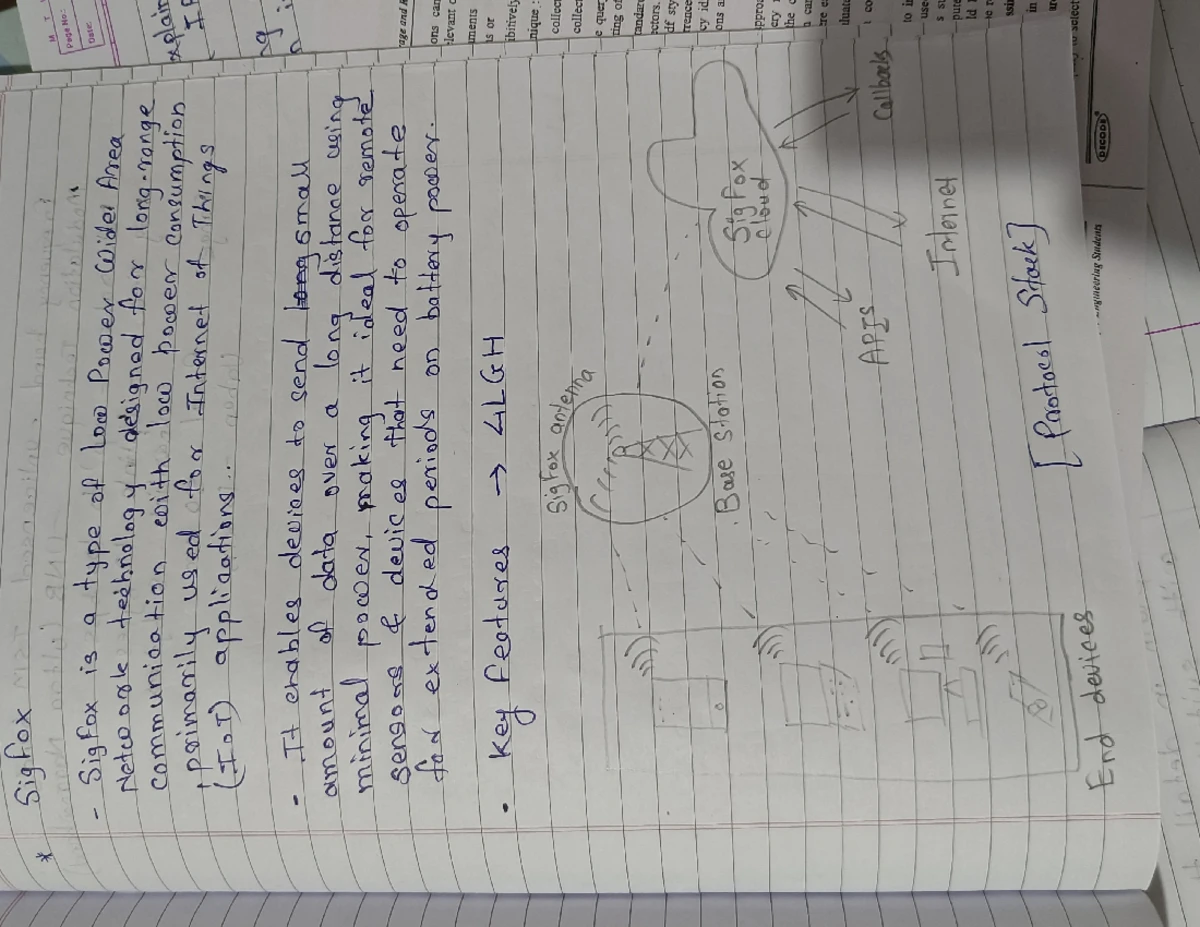 * Sigfox
- Sigfox is a type of Low Power Wider Area
Network technology designed for long-range
communication with low power consumption
primarily used for Internet of Things
(IoT) applications..
- It enables devices to send long small
amount of data over a long distance using
minimal power, making it ideal for remote
sensors & devices that need to operate
for extended periods on battery power.
• Key features → 4LGH
Sigfox antenna
Base Station
Sigfox
cloud
Callbacks
APIS
Internet
End devices
[Protocol Stack]
DECODE
ngineering Students
Page No:
Date:
explain